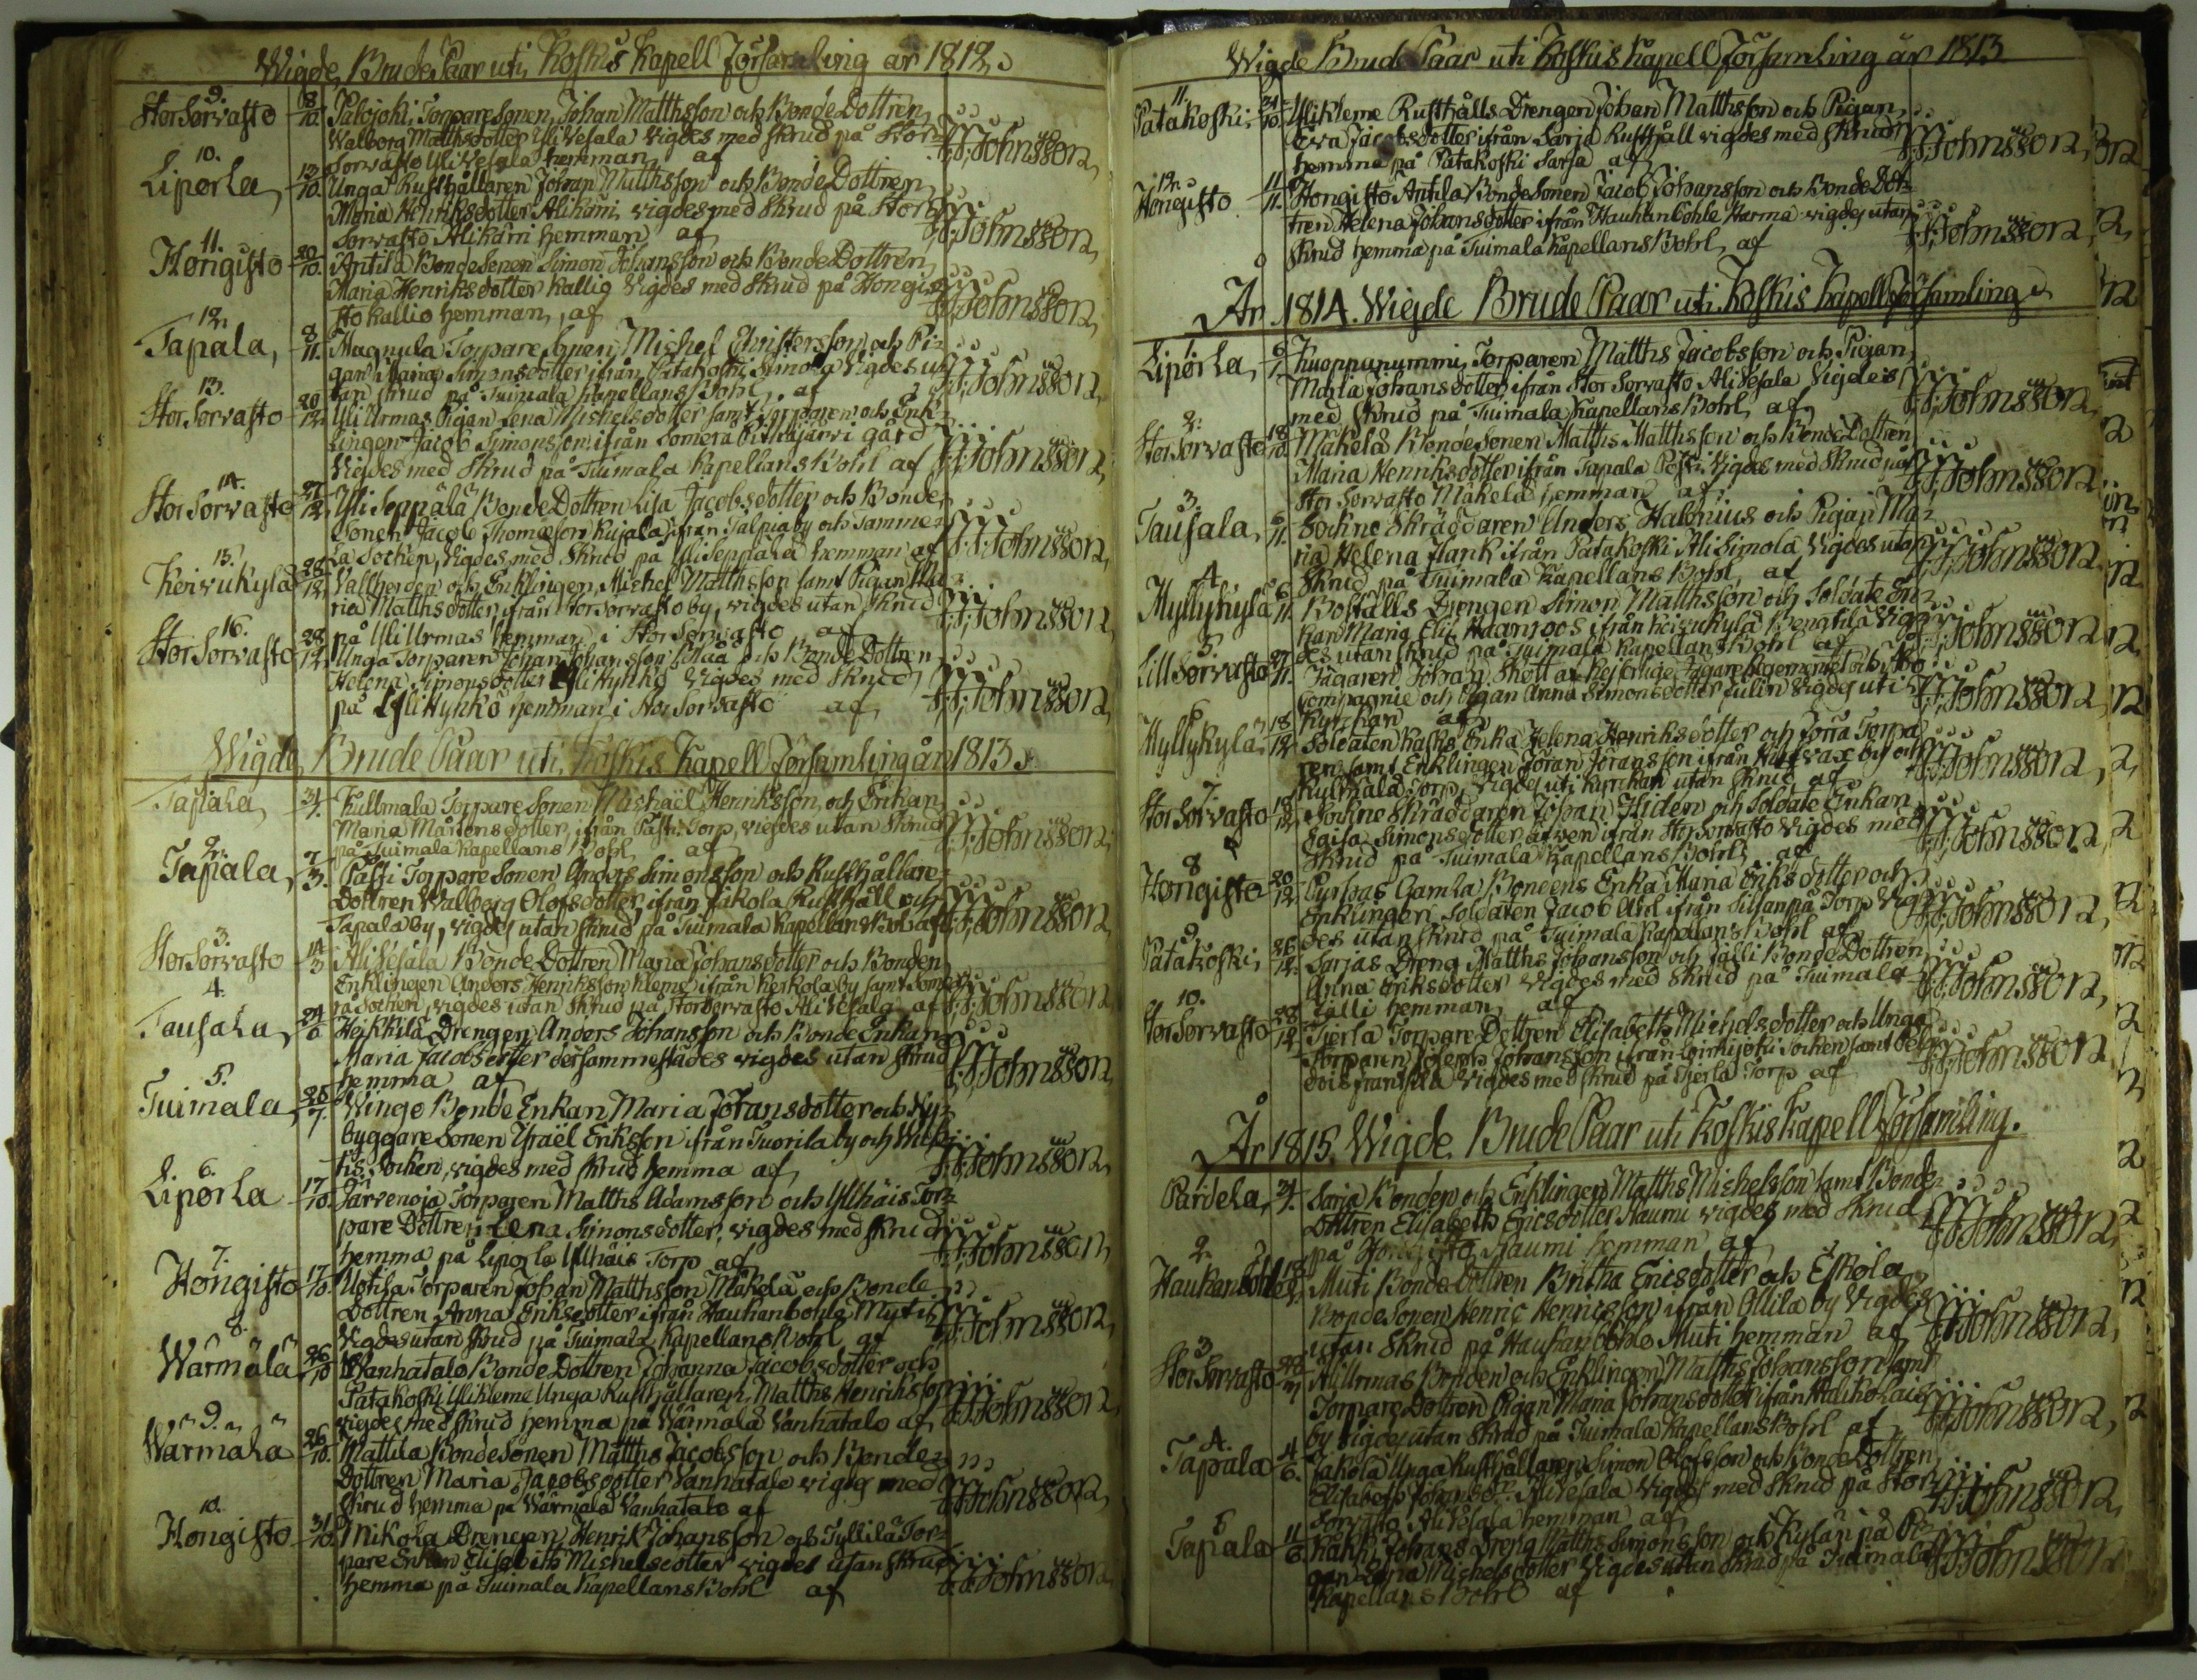 Wigde Brude Paar uti Koskis Kapell Församling år 1812.
9.
StorSorvasto 8/10. Palojoki Torpare Sonen Johan Matthsson och BondeDottren
Walborg Matthsdotter YliVesala vigdes med skrud på Stor
Sorvasto YliVesala hemman af J:J:Johnsson
10.
Liporla 13/10. Unga Rusthållaren Johan Matthsson och BondeDottren
Maria Henriksdotter Alikärri vigdes med skrud på Stor
Sorvasto Alikärri hemman af J:J:Johnsson
11.
Hongisto 20/10. Antila BondeSonen Simon Johansson och BondeDottren
Maria Henriksdotter Kallio vigdes med skrud på Hongi
sto Kallio hemman, af J:J:Johnsson
12.
Tapala, 8/11. Magnula Torpare Sonen Michel Christersson och Pi-
gan Maria Simonsdotter ifrån Patakoski Simola vigdes u-
tan skrud på Tuimala Kapellans Bohl, af J:J:Johnsson
13.
StorSorvasto 20/12. YliUrmas Pigan Lena Michelsdotter samt Torparen och Enk-
lingen Jacob Simonsson ifrån Somero Pitkäjärvi gård
vigdes med skrud på Tuimala Kapellans Bohl af J:J:Johnsson
14.
StorSorvasto 27/12. YliSeppälä BondeDottren Lisa Jacobsdotter och Bonde
Sonen Jacob Thomasson Kujala ifrån Talpia by och Tamme-
la Socken, vigdes med skrud på YliSeppälä hemman af J:J:Johnsson
15.
Keivukylä 28/12. Vallherden och Enklingen Michel Matthsson samt Pigan Ma-
ria Matthsdotter ifrån StorSorvasto by, vigdes utan skrud
på YliUrmas hemman i StorSorvasto af J:J:Johnsson
16.
StorSorvasto 28/12. Unga Torparen Johan Johansson och BondeDottren
Helena Simonsdotter YliHyhkö vigdes med skrud
på YliHyhkö hemman i StorSorvasto af J:J:Johnsson
Wigde Brude Paar uti Koskis Kapell Församling år 1813.
Tapala, 31/1. Kullmala Torpare Sonen Michaël Henriksson och Enkan
Maria Mårtensdotter, ifrån Pässi Torp, vigdes utan skrud
på Tuimala Kapellans Bohl af J:J:Johnsson
2.
Tapala, 7/3. Pässi Torpare Sonen Anders Simonsson och Rusthållare
Dottren Walborg Olofsdotter, ifrån Jakola Rusthåll och
Tapala by, vigdes utan skrud på Tuimala Kapellans Bohl af J:J:Johnsson
3.
StorSorvasto 14/3 AliVesala BondeDottren Maria Johansdotter och Bonden
Enklingen Anders Henriksson Kleme ifrån Kerkola by samt Some
ro Socken, vigdes utan skrud på StorSorvasto AliVesala, af J:J:Johnsson
4.
Tausala, 24/ Heikkilä Drengen Anders Johansson och Bonde Enkan
Maria Jacobsdotter dersammestädes vigdes utan skrud
hemma af J:J:Johnsson
5.
Tuimala, 25/7 Wingo Bonde Enkan Maria Johansdotter och Ny-
byggare Sonen Israël Eriksson ifrån Tuorila by och
Socken, vigdes med skrud hemma af J:J:Johnsson
6.
Liporla 17/10. Järvenoja Torparen Matths Adamsson och Ylihäis Tor-
pare Dottren Lena Simonsdotter, vigdes med skrud
hemma på Liporla Ylihäis Torp af J:J:Johnsson
7.
Hongisto 17/10. Uotila Torparen Johan Matthsson Mäkelä och Bonde
Dottren Anna Eriksdotter ifrån Hauhanbohle Myti
Vigdes utan skrud på Tuimala Kapellans Bohl af J:J:Johnsson
8.
Wärmälä 26/10 Wanhatalo BondeDottren Johanna Jacobsdotter och
Patakoski Ylikleme Unga Rusthållaren, Matths Henriksson
vigdes med skrud hemma på Wärmälä Vanhatalo af J:J:Johnsson
9.
Wärmälä 26/10. Mattila BondeSonen Matths Jacobsson och Bonde
Dottren Maria Jacobsdotter Vanhatalo vigdes med
skrud hemma på Wärmälä Vanhatalo af J:J:Johnsson
10.
Hongisto 31/10. Mikola Drengen Henrik Johansson och Tyllilä Tor-
pare Enkan Elisabeth Michelsdotter vigdes utan skrud
hemma på Tuimala Kapellans Bohl af J:J:Johnsson
Wigde Brude Paar uti Koskis Kapell Församling år 1813
11.
Patakoski, 31/10. Ylikleme Rusthålls Drengen Johan Matthsson och Pigan
Eva Jacobsdotter ifrån Sarja Rusthåll vigdes med skrud
hemma på Patakoski Sarja af J:J:Johnsson
12.
Hongisto 11/11. Hongisto Antila BondeSonen Jacob Johansson och BondeDot-
tren Helena Johansdotter ifrån Hauhanbohle Harma vigdes utan
skrud hemma på Tuimala Kapellans Bohl, af J:J:Johnsson
Ar 1814. Wigde Brude Paar uti Koskis Kapell Församling
1.
Liporla, 6/1. Kuoppanummi Torparen Matths Jacobsson och Pigan
Maria Johansdotter, ifrån StorSorvasto AliVesala vigdes
med skrud på Tuimala Kapellans Bohl af J:J:Johnsson
2.
StorSorvasto 18/10. Mäkelä BondeSonen Matths Matthsson och BondeDottren
Maria Henriksdotter ifrån Tapala Pässi vigdes med skrud på
StorSorvasto Mäkelä hemman af J:J:Johnsson
3.
Tausala, 6/11. Sockne Skräddaren Anders Halenius och Pigan Ma-
ria Helena Flank ifrån Patakoski AliSimola vigdes utan
skrud på Tuimala Kapellans Bohl af J:J:Johnsson
4.
Myllykylä 6/11. Boställs Drengen Simon Matthsson och Soldate En-
kan Maria Elis. Haanroos ifrån Keivukylä Benghtilä vig-
des utan skrud på Tuimala Kapellans Bohl af J:J:Johnsson
5.
LillSorvasto 27/11. Jägaren Johan Skott af Kejserlige Jägare Regementet och
Compagnie och Pigan Anna Simonsdotter Julin vigdes uti
Kyrckan af J:J:Johnsson
6
Myllykylä 18/12. Soldaten Kasks Enka Helena Henriksdotter och Förra Torpa-
ren samt Enklingen Johan Johansson ifrån by och
Kullmala Torp, vigdes uti Kyrckan utan skrud af J:J:Johnsson
7.
StorSorvasto 18/12. Sockne Skräddaren Johan Hiden och Soldate Enkan
Caisa Simonsdotter äfven ifrån StorSorvasto vigdes med
skrud på Tuimala Kapellans Bohl af J:J:Johnsson
8
Hongisto 20/12. Purhas Gamla Bondens Enka Maria Eriksdotter och
Enklingen Soldaten Jacob Ahl ifrån Torp vig-
des utan skrud på Tuimala Kapellans Bohl af J:J:Johnsson
9.
Patakoski, 26/12. Sarjas Dreng Matths Johansson och Jälli BondeDottren
Anna Eriksdotter vigdes med skrud på Tuimala
Jälli hemman af J:J:Johnsson
10.
StorSorvasto 28/12. Tjerla Torpare Dottren Elisabeth Michelsdotter och Unga
Torparen Joseph Johansson ifrån Loimijoki Socken samt
vigdes med skrud på Tjerla Torp af J:J:Johnsson
År 1815, Wigde Brude Paar uti Koskis Kapell Församling.
Partela, 31/1. Sarja Bonden och Enklingen Matths Michelsson samt Bonde
Dottren Elisabeth Ericsdotter Haumi vigdes med skrud
på Hongisto Haumi hemman af J:J:Johnsson
2.
Hauhanbohle Muti BondeDottren Britha Ericsdotter och Eskola
BondeSonen Henric Henricsson ifrån Ollila by vigdes
utan skrud på Hauhanbohle Muti hemman af J:J:Johnsson
3
StorSorvasto AliUrmas Bonden och Enklingen Matths Johansson samt
Torpare Dottren Pigan Maria Johansdotter ifrån Halikohais
by vigdes utan skrud på Tuimala Kapellans Bohl af J:J:Johnsson
4.
Tapala 4/6. Jakola Unga Rusthållaren Simon Olofsson och BondeDottren
Elisabeth Johansdotter AliVesala vigdes med skrud på Stor
Sorvasto AliVesala hemman af J:J:Johnsson
5
Tapala 11/6. Johans Dreng Matths Simonsson och på Pi-
gan Maria Michelsdotter vigdes utan skrud på Tuimala
Kapellans Bohl af J:J:Johnsson